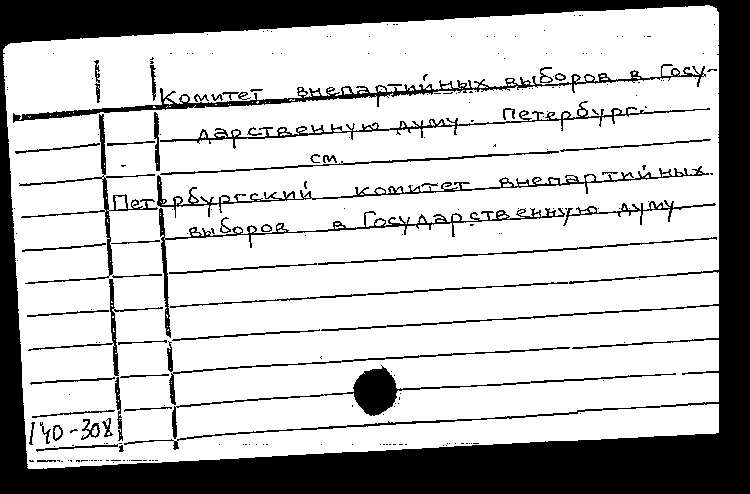 Комитет внепартийных выборов в Госу-
дарственную думу. Петербург.
см.
Петербургский комитет внепартийных
выборов в Государственную думу
140-308